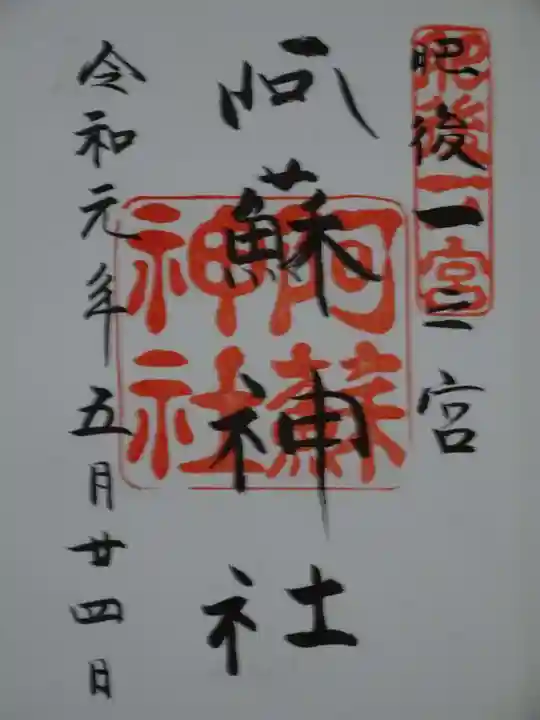 肥後一之宮
阿蘇神社
令和元年五月廿四日
肥後一宮
阿蘇
神社